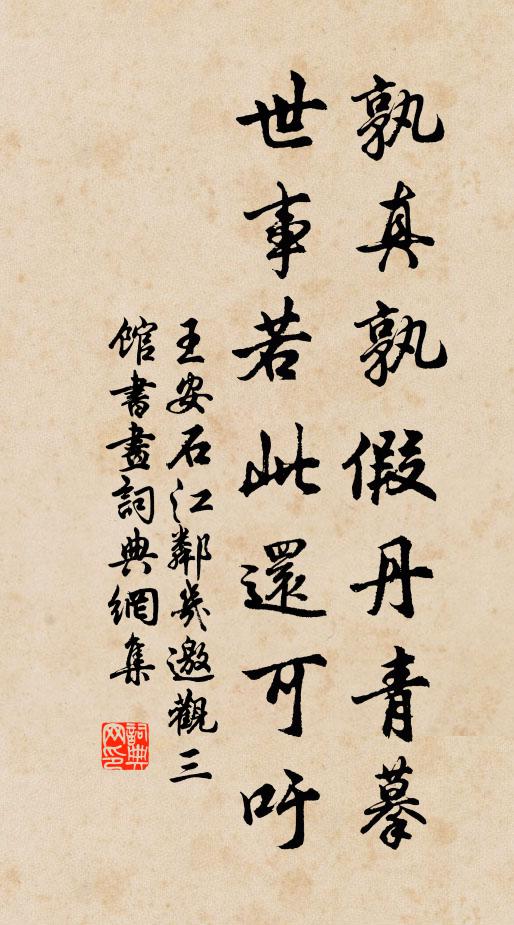 孰真孰假丹青摹
世事若此還可吁
王安石江鄰幾邀觀三
館書畫詞典網集
詞典网印